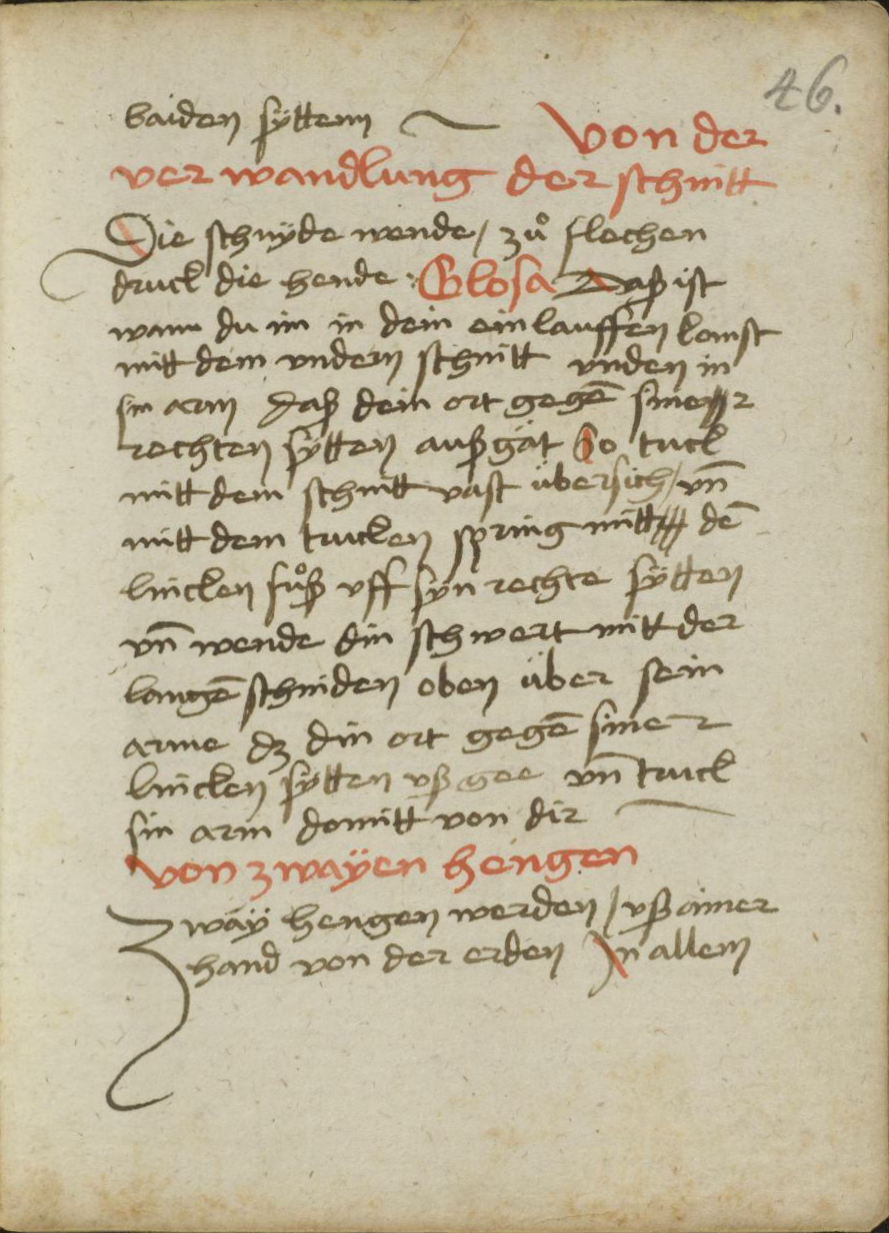 46.
baiden sÿttenn von der
verwandlung der schnitt
Die schnÿde wende / zuͦ flechen
druck die hende : Glosa Daß ist
wann du im in dem einlauffen komst
mitt dem vndern schnitt vnden in
sin arm daß dein ort gegē siner
rechten sÿtten außgät So truck
mitt dem schnitt vast übersich / vn̄
mitt dem trucken spring mitt dē
lincken fuͦß vff sÿn rechte sÿtten
vn̄ wende din schwert mitt der
langē schniden oben über sein
arme dz din ort gegē siner
lincken sÿtten vßgee vn̄ truck
sin arm domitt von dir
von zwaÿen hengen
Zwaÿ hengen werden / vß ainer
hand von der erden In allem